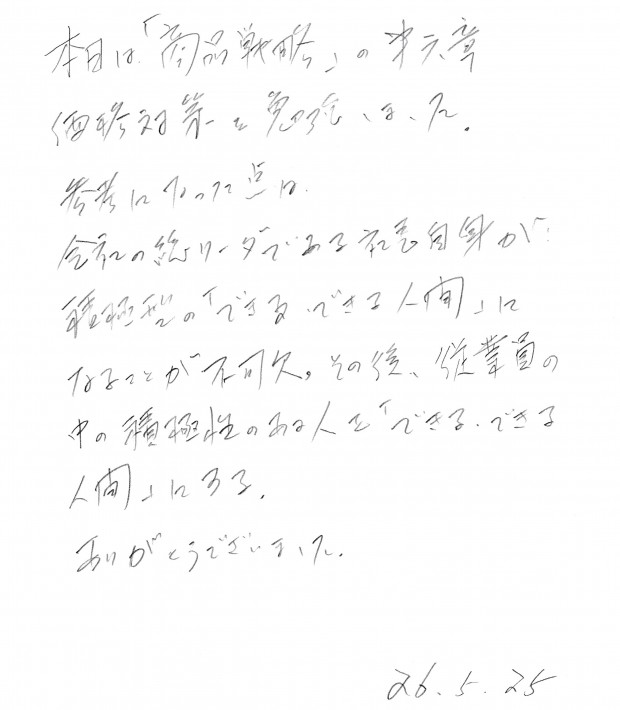 本日は「商品戦略」の第六章
価格対策を勉強しました。
参考になった点は、
会社の総リーダーである社長自身が、
積極型の「できる、できる人間」に
なることが不可欠。その後、従業員の
中の積極性のある人を「できる、できる
人間」にする。
ありがとうございました。
26.5.25